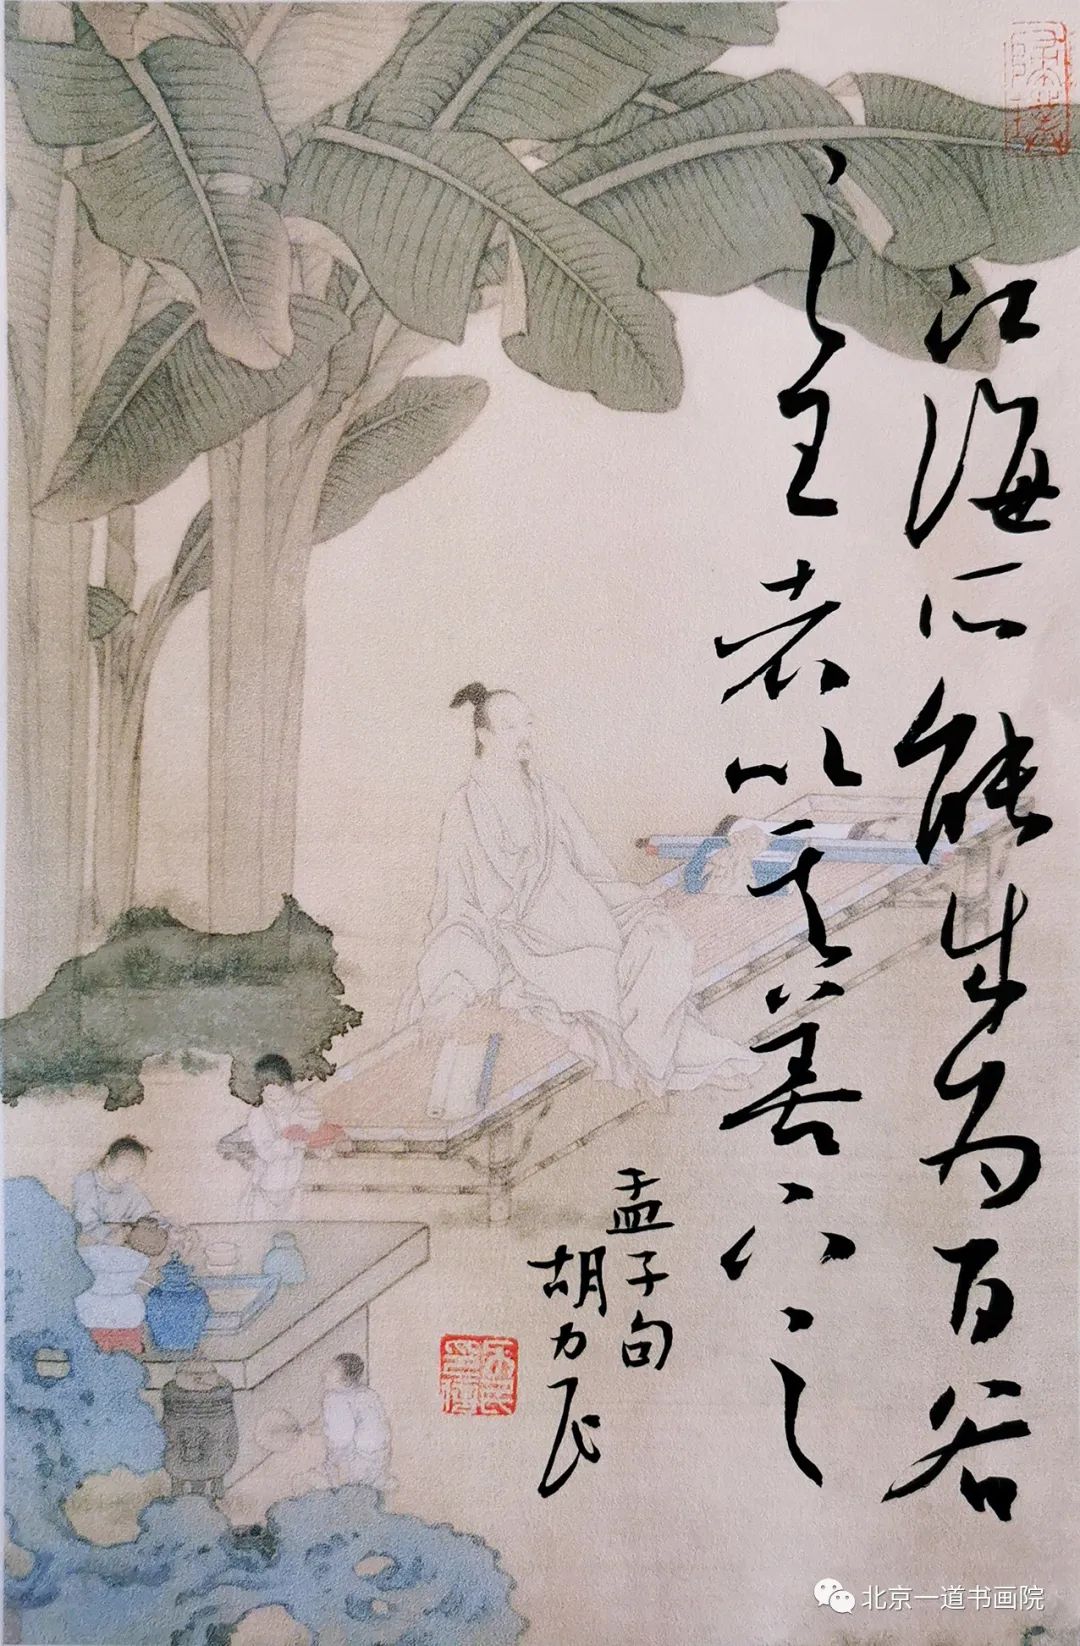 江海所能成为百谷
之王者以其善下之
孟子句
胡力民
北京一道书画院